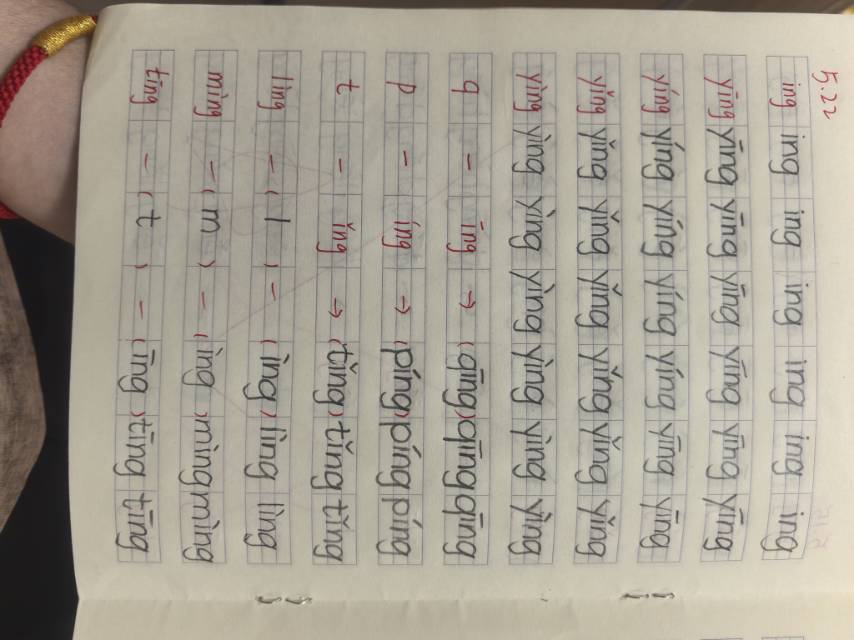 5.22
ing ing ing ing ing ing ing
yīng yīng yīng yīng yīng yīng yīng
yíng yíng yíng yíng yíng yíng yíng
yǐng yǐng yǐng yǐng yǐng yǐng yǐng
yìng yìng yìng yìng yìng yìng yìng
q - īng → (qīng) qīng qīng
p - íng → (píng) píng píng
t - ǐng → (tǐng) tǐng tǐng
lìng - ( l ) - (ìng) lìng lìng
míng - ( m ) - (íng) míng míng
tīng - ( t ) - (īng) tīng tīng